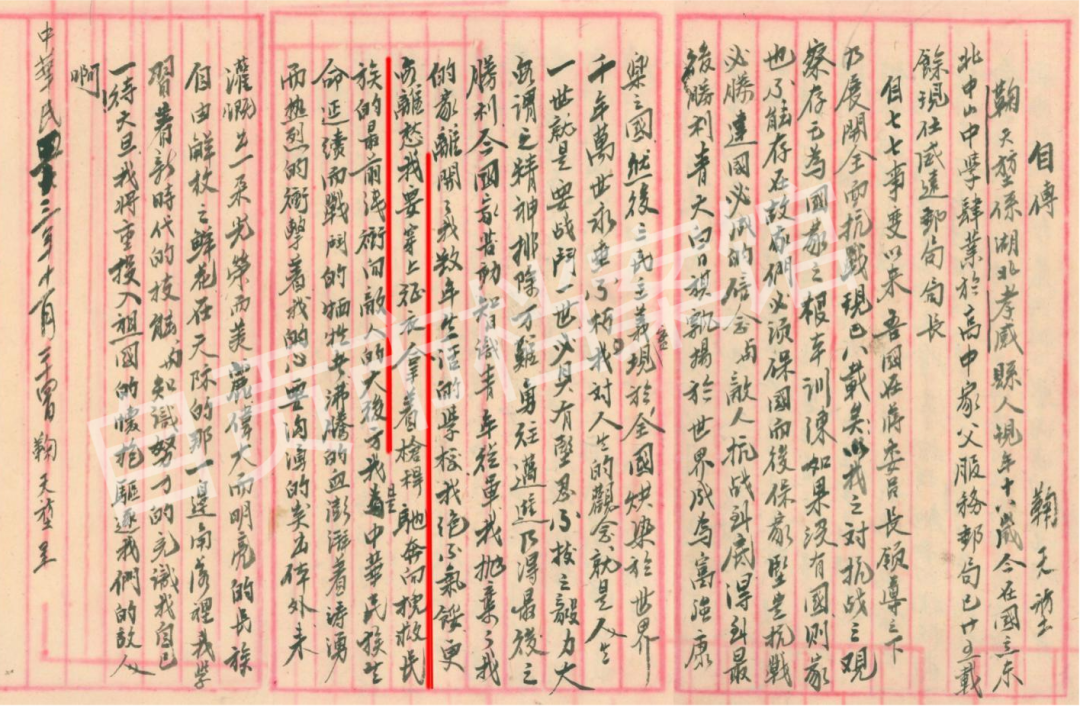 自傳
鞠天塹
鞠天塹係湖北孝感縣人現年十八歲今在國立東
北中山中學肄業於高中家父服務郵局已廿五載
餘現任咸遠郵局局長
自七七事變以來吾國在蔣委員長領導之下
乃展開全面抗戰現已八載矣以我之對抗战之觀
察存亡為國家之根本訓陳如果沒有國則家
也不能存在故我們必須保國而後保家堅其抗戰
必勝建國必成的信念與敵人抗战到底得到最
後勝利青天白日旗飄揚於世界成為富強康
樂之國然後三民主義現於全國快樂於世界
千年萬世永垂不朽我对人生的觀念就是人生
一世就是要战鬥一世必具有堅忍不拔之毅力大
無謂之精神排除萬難勇往邁進乃得最後之
勝利今國家苦勸知識青年從軍我抛棄了我
的家離開了我数年生涯的學校我絕不氣餒更
無離愁我要穿上征衣拿着槍桿馳奔向挽救民
族的最前浅衝向敵人的大後方我為是中華民族生
命延續而戰鬥的牺牲者沸騰的血澎湃着涛湧
而热烈的衝擊着我的心要沟溥的矣去碎外未
灌溉出一朵光荣而美麗偉大而明亮的民族
自由解放之鮮花在天际的那一邊角落裡我学
習着新時代的技能與知識努力的充識我自己
一待天旦我將重投入祖國的懷抱驅逐我們的敵人
啊
中華民國卅三年十一月三十日鞠天塹呈
自贡市档案馆